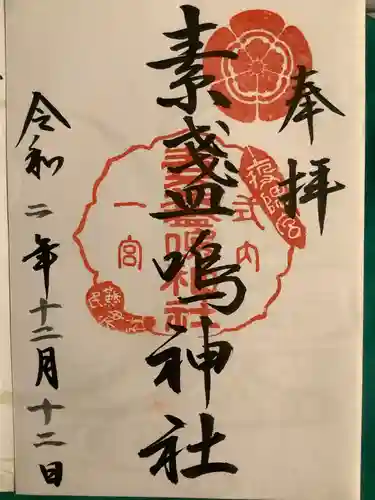 奉拝
素盞嗚神社
令和二年十二月十二日
式内
一宮
素盞嗚神社